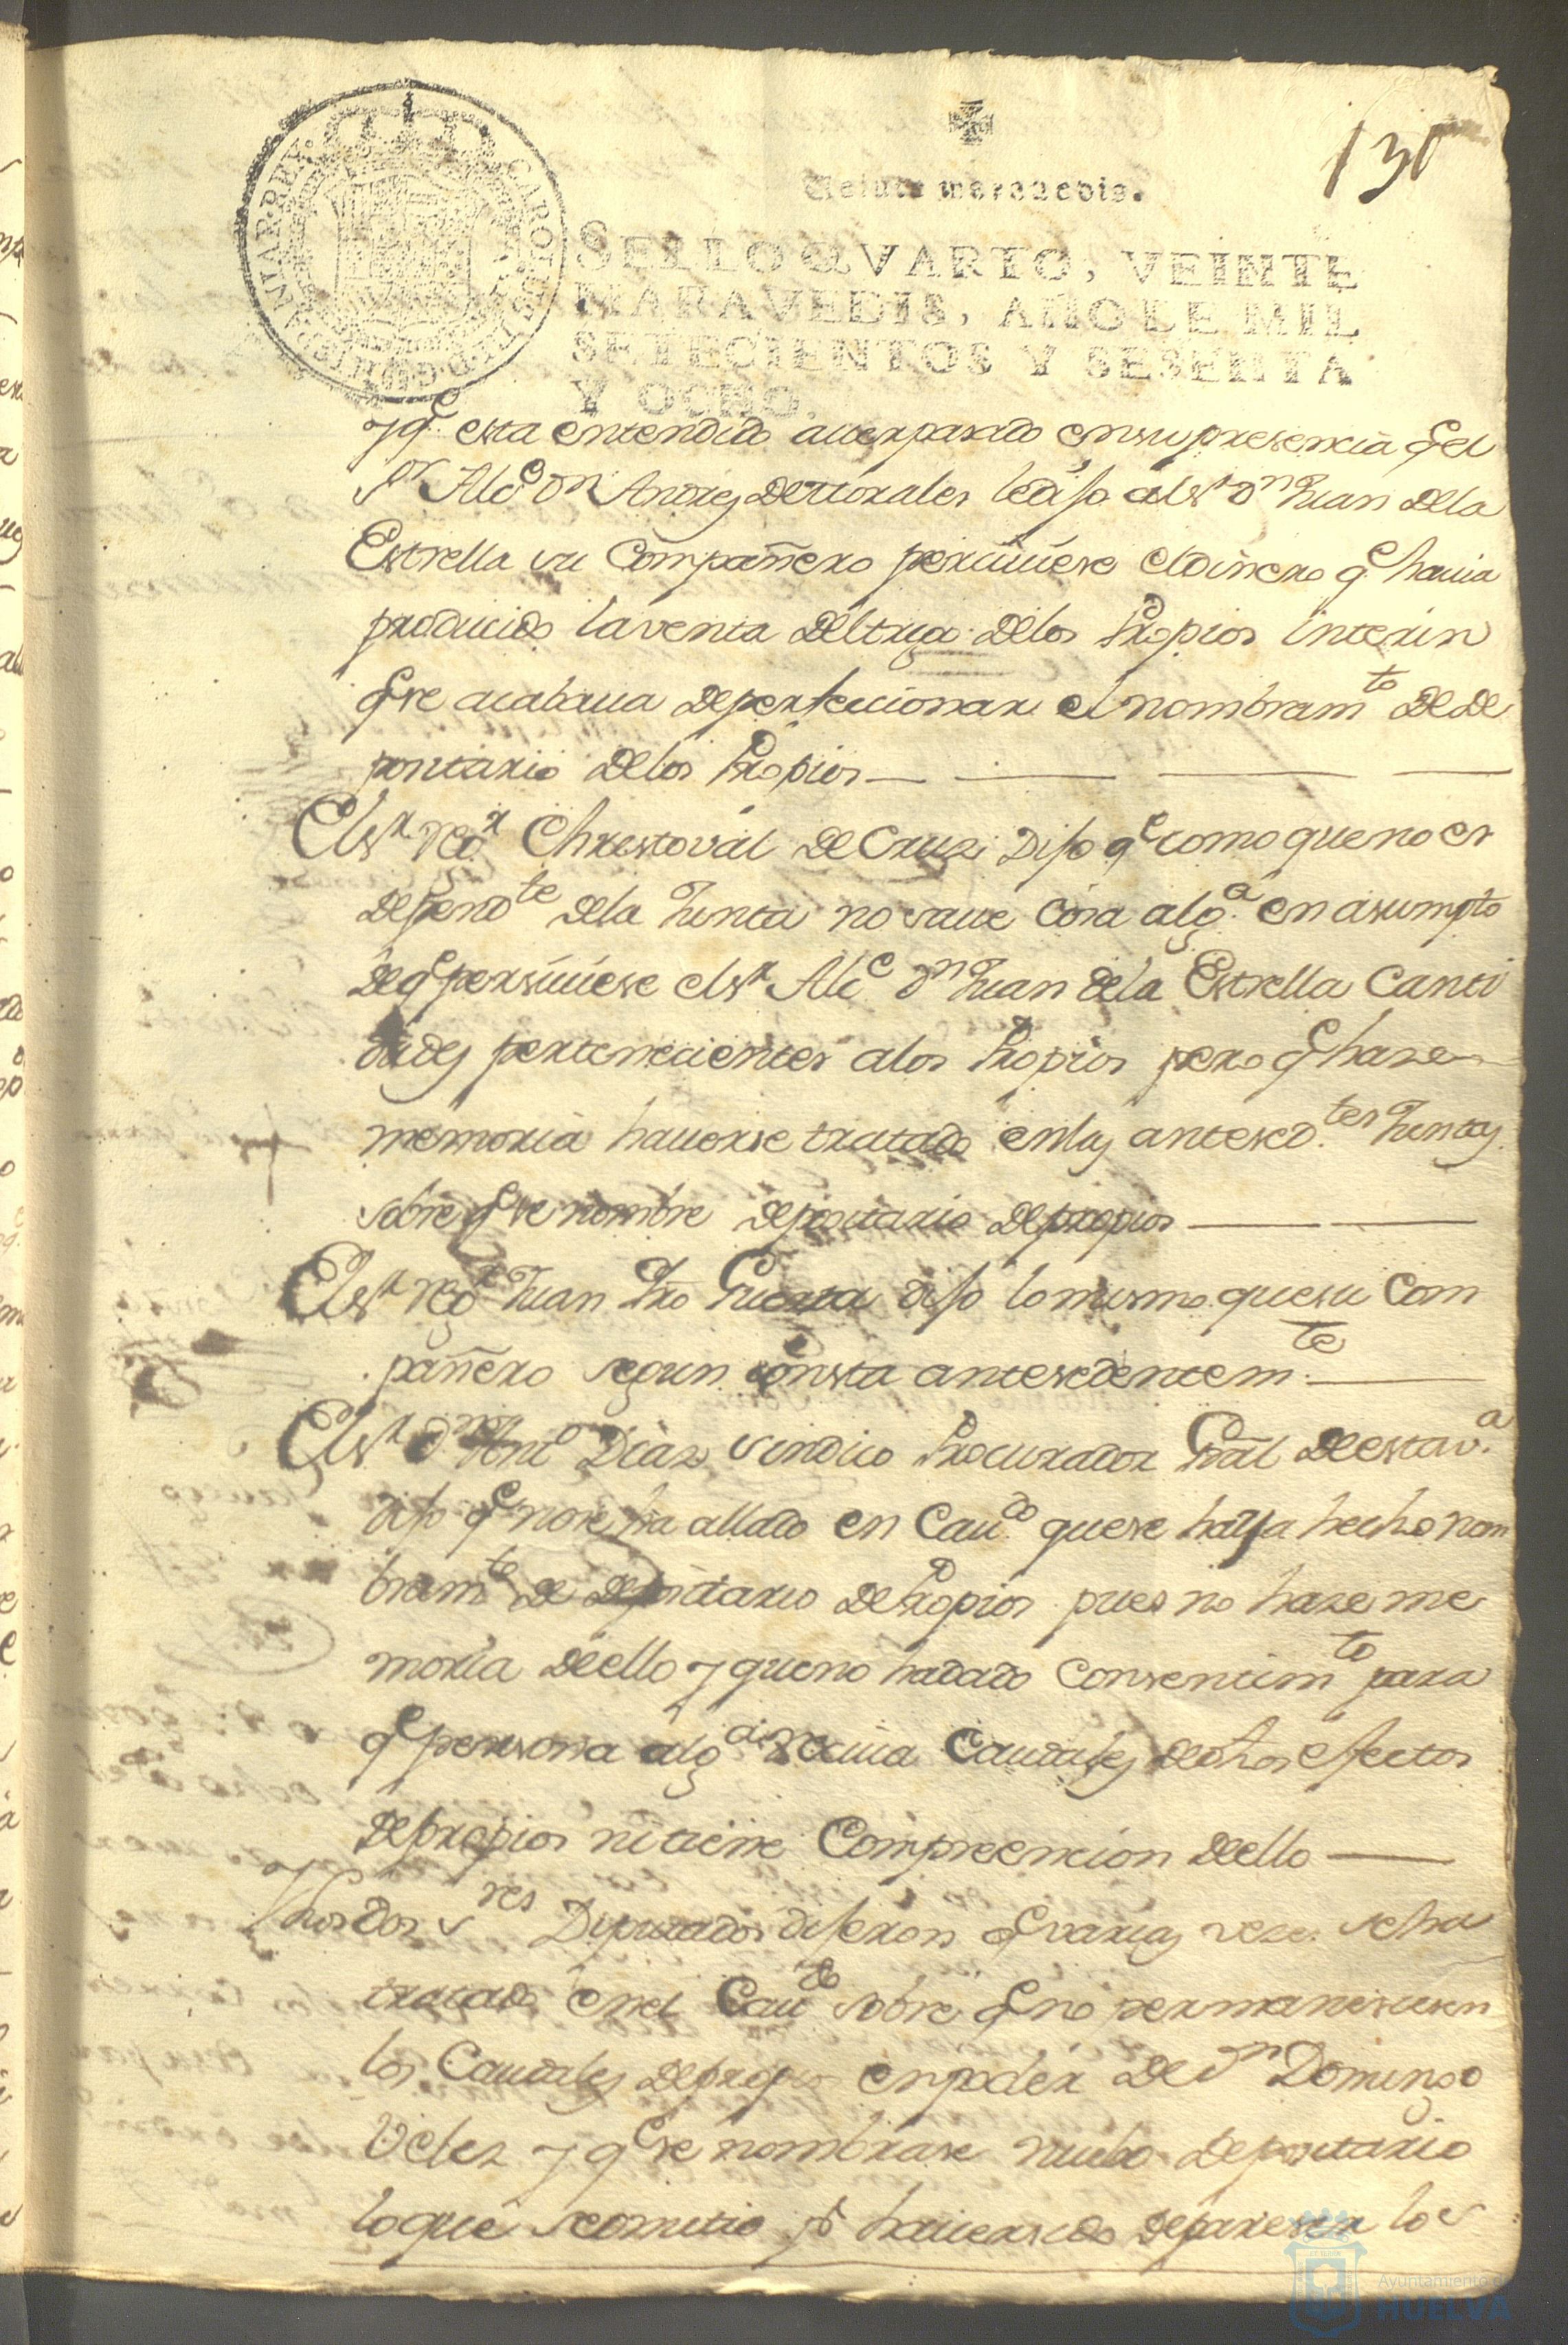 130
Veinte maravedis.
SELLO QVARTO, VEINTE
MARAVEDIS, AÑO DE MIL
SETECIENTOS Y SESENTA
Y OCHO.
y q.e esta entendido auer pasado en su presencia q.e el
s.r Alc.e Dn Andres de Morales le dijo al s.r Dn Juan de la
Estrella su Compañero perciuiese el dinero q.e hauia
producido la venta del trigo de los Propios interin
q.e se acabaua de perfeccionar el nombram.to de de
positario de los Propios
El s.r reg.r Christoval de Cruz Dijo q.e como que no es
depend.te de la Junta no saue cosa alg.a en asumpto
de q.e persiuiese el s.r Alc.e Dn Juan de la Estrella Canti
dades pertenecientes a los Propios pero q.e haze
memoria hauerse tratado en las antesed.tes Juntas
sobre q.e se nombre depositario de propios
El s.r reg.r Juan Pro Guerra dijo lo mismo que su Com
pañero segun consta antesedentem.te
El s.r Dn Ant.o Diaz sindico Procurador Gral de esta v.a
dijo q.e no se ha allado en Cau.do que se haya hecho nom
bram.to de depositario de Propios pues no haze me
moria de ello y que no ha dado Consentim.to para
q.e persona alg.a reciua Caudales de dhos efectos
de propios ni tiene Compreencion de ello
Y dhos dos s.res Diputados dijeron q.e varias vezes se ha
tratado en el Cau.do sobre q.e no permaneciesen
los Caudales de propios en poder de Dn Domingo
Velez y q.e se nombrase nuebo depositario
lo que se omitio p.r hauer sido de pareser los
Ayuntamiento de
HUELVA